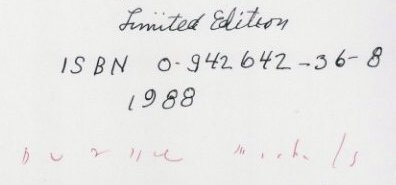 Limited Edition
ISBN 0-942642-36-8
1988